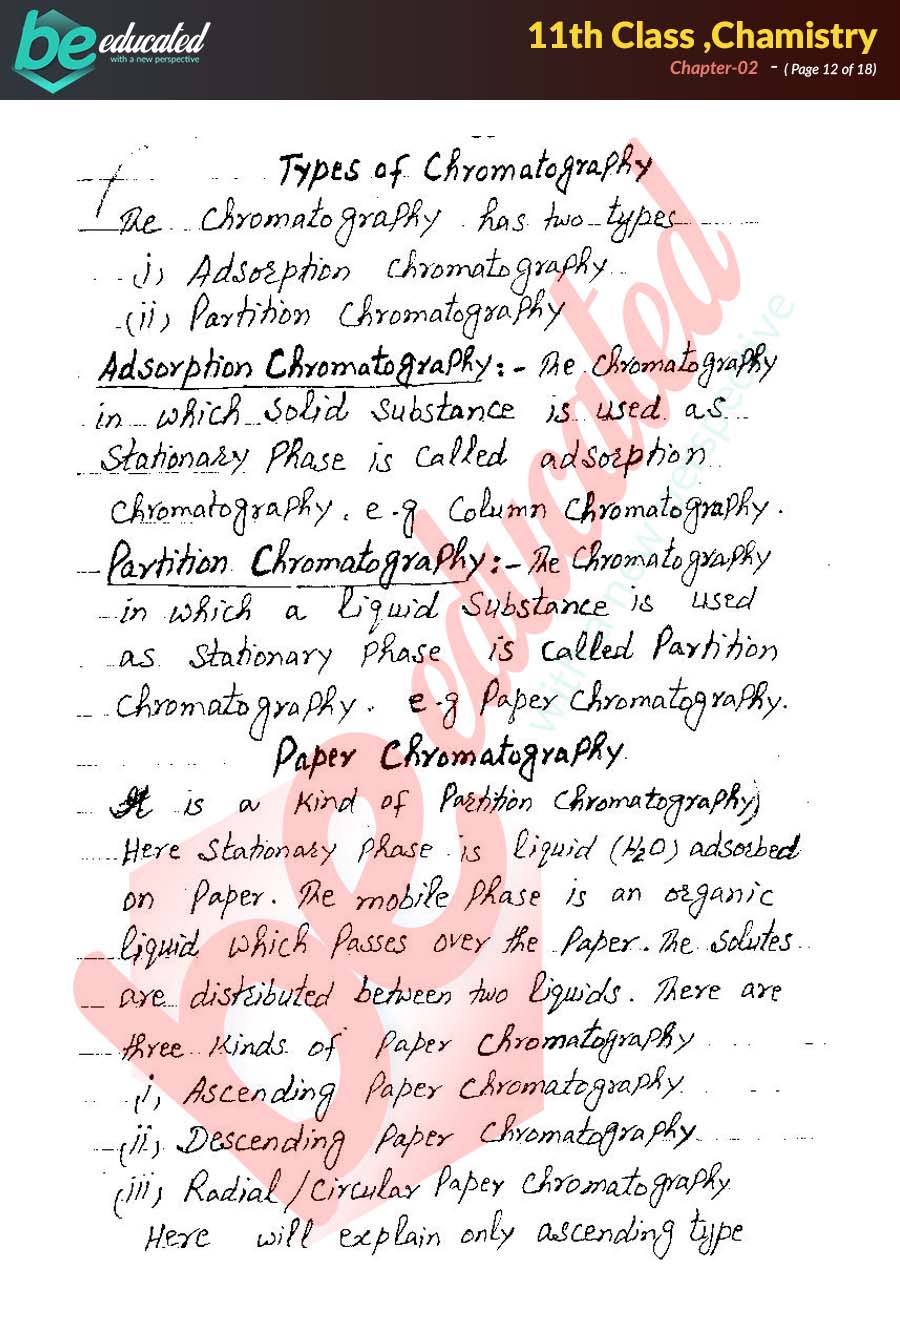 be educated
with a new perspective
11th Class ,Chamistry
Chapter-02 - ( Page 12 of 18)
Types of Chromatography
The Chromatography has two types
(i) Adsorption Chromatography
(ii) Partition Chromatography
Adsorption Chromatography:- The Chromatography
in which solid substance is used as
Stationary Phase is called adsorption
Chromatography. e.g Column Chromatography.
Partition Chromatography:- The Chromatography
in which a liquid Substance is used
as Stationary Phase is called Partition
Chromatography. e.g Paper Chromatography.
Paper Chromatography.
It is a kind of Partition Chromatography)
Here Stationary Phase is liquid (H2O) adsorbed
on Paper. The mobile Phase is an organic
liquid which Passes over the Paper. The Solutes
are distributed between two liquids. There are
three kinds of Paper Chromatography
(i) Ascending Paper Chromatography.
(ii) Descending Paper Chromatography
(iii) Radial/Circular Paper Chromatography
Here will explain only ascending type
be educated
with a new perspective